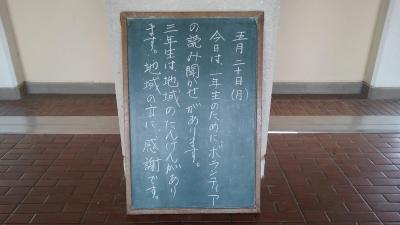 五月二十日(月)
今日は、一年生のためにボランティア
の読み聞かせがあります。
三年生は地域のたんけんがあり
ます。地域の方に、感謝です。